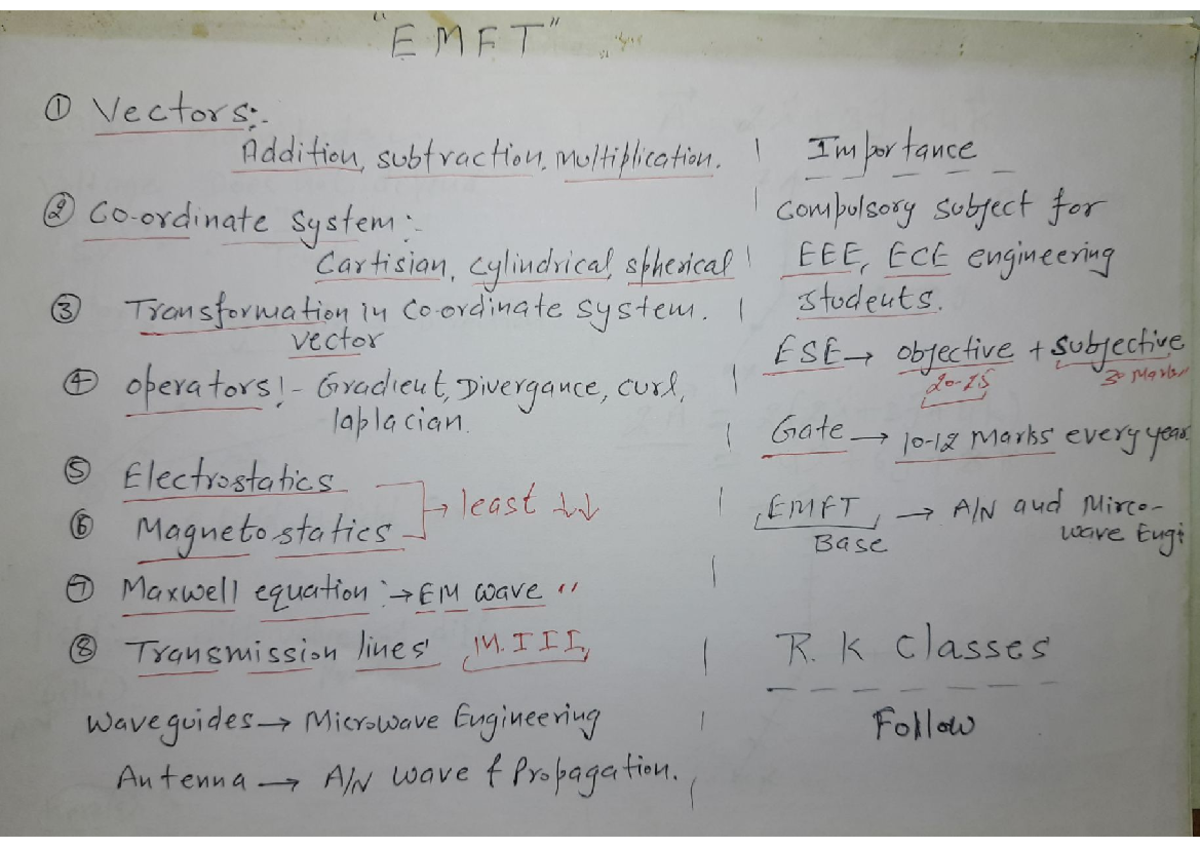 "EMFT"
① Vectors:-
Addition, subtraction, multiplication.
② Co-ordinate system:-
Cartisian, cylindrical, spherical
③ Transformation in Co-ordinate system.
vector
④ operators!- Gradient, Divergance, curl,
laplacian.
⑤ Electrostatics
→ least ↓↓
⑥ Magneto statics
⑦ Maxwell equation:→ EM wave "
⑧ Transmission lines M.III
Waveguides → Microwave Engineering
Antenna → A/N wave & Propagation.
Importance
Compulsory subject for
EEE, ECE engineering
students.
ESE → objective + subjective
20-25 30 Marks
Gate → 10-12 Marks every year.
EMFT → A/N and Mirco-
Base wave Engi
R. K Classes
Follow